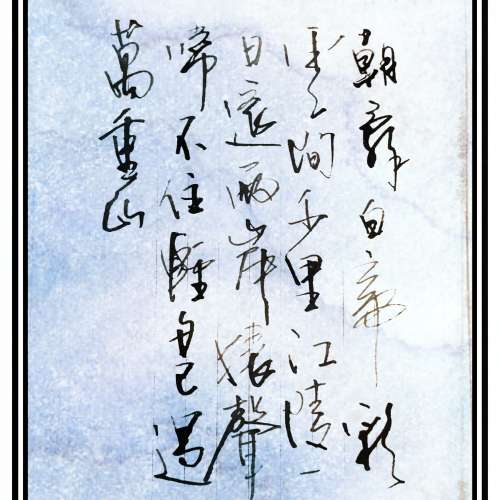 朝辭白帝彩
雲間千里江陵一
日還兩岸猿聲
啼不住輕舟已過
萬重山